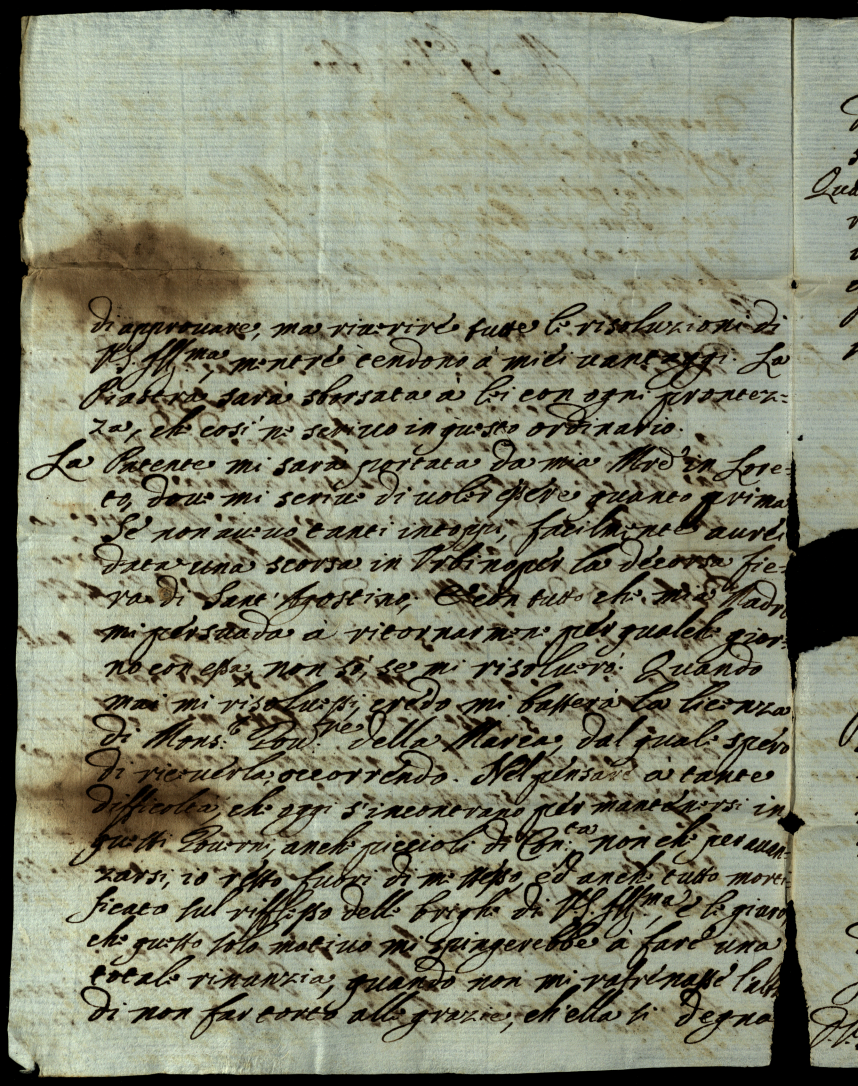 di approuare, ma riuerire tutte le risoluzioni di
V.S. Ill.ma, mentre tendono à miei uantaggi. La
Piastra sarà sborsata à lei con ogni prontez=
za, che così ne scriuo in questo ordinario.
La Patente mi sarà portata da mia Mre in Lore=
to, doue mi scriue di uoler essere quanto prima
Se non aueuo tanti intoppi, facilmente aurei
data una scorsa in Urbino per la decorsa fie=
ra di Sant'Agostino, e con tutto che mia Madre
mi persuada à ritornarmene per qualche gior=
no con essa, non sò, se mi risoluerò. Quando
mai mi risoluessi, credo mi basterà la licenza
di Mons.r Gou.re della Marca, dal quale spero
di riceuerla, occorrendo. Nel pensare à tante
difficoltà, che oggi s'incontrano per mantenersi in
questi Gouerni, anche piccioli di Con.ta, non che per auan=
zarsi, io resto fuori di me stesso, ed anche tutto morti=
ficato sul riflesso delle brighe di V.S. Ill.ma, e le giuro,
che questo solo motiuo mi spingerebbe à fare una
totale rinanzia, quando non mi rafrenasse l'altro
di non far torto alle grazie, ch'ella si degna